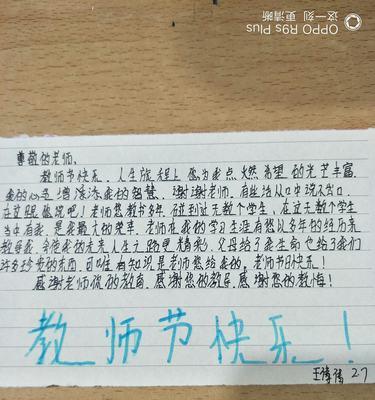 OPPO R9s Plus
这一刻 更清晰
尊敬的老师,
教师节快乐。人生旅程上,您为我点燃希望的光芒丰富
我的心灵,增添我的智慧。谢谢老师。有些话从口中说不出口,
在这跟您说吧!老师您教书多年,碰到过无数个学生,在这无数个学生
当中有我,是我最大的荣幸。老师在我的学习生涯有您以多年的经历来
教导我,令我的未来人生之路更精彩,父母给了我生命也给了我们
许多珍贵的东西,可唯有知识是老师您给我的,老师节日快乐!
感谢老师您的教育,感谢您的教导,感谢您的教悔!
教师节快乐!
27